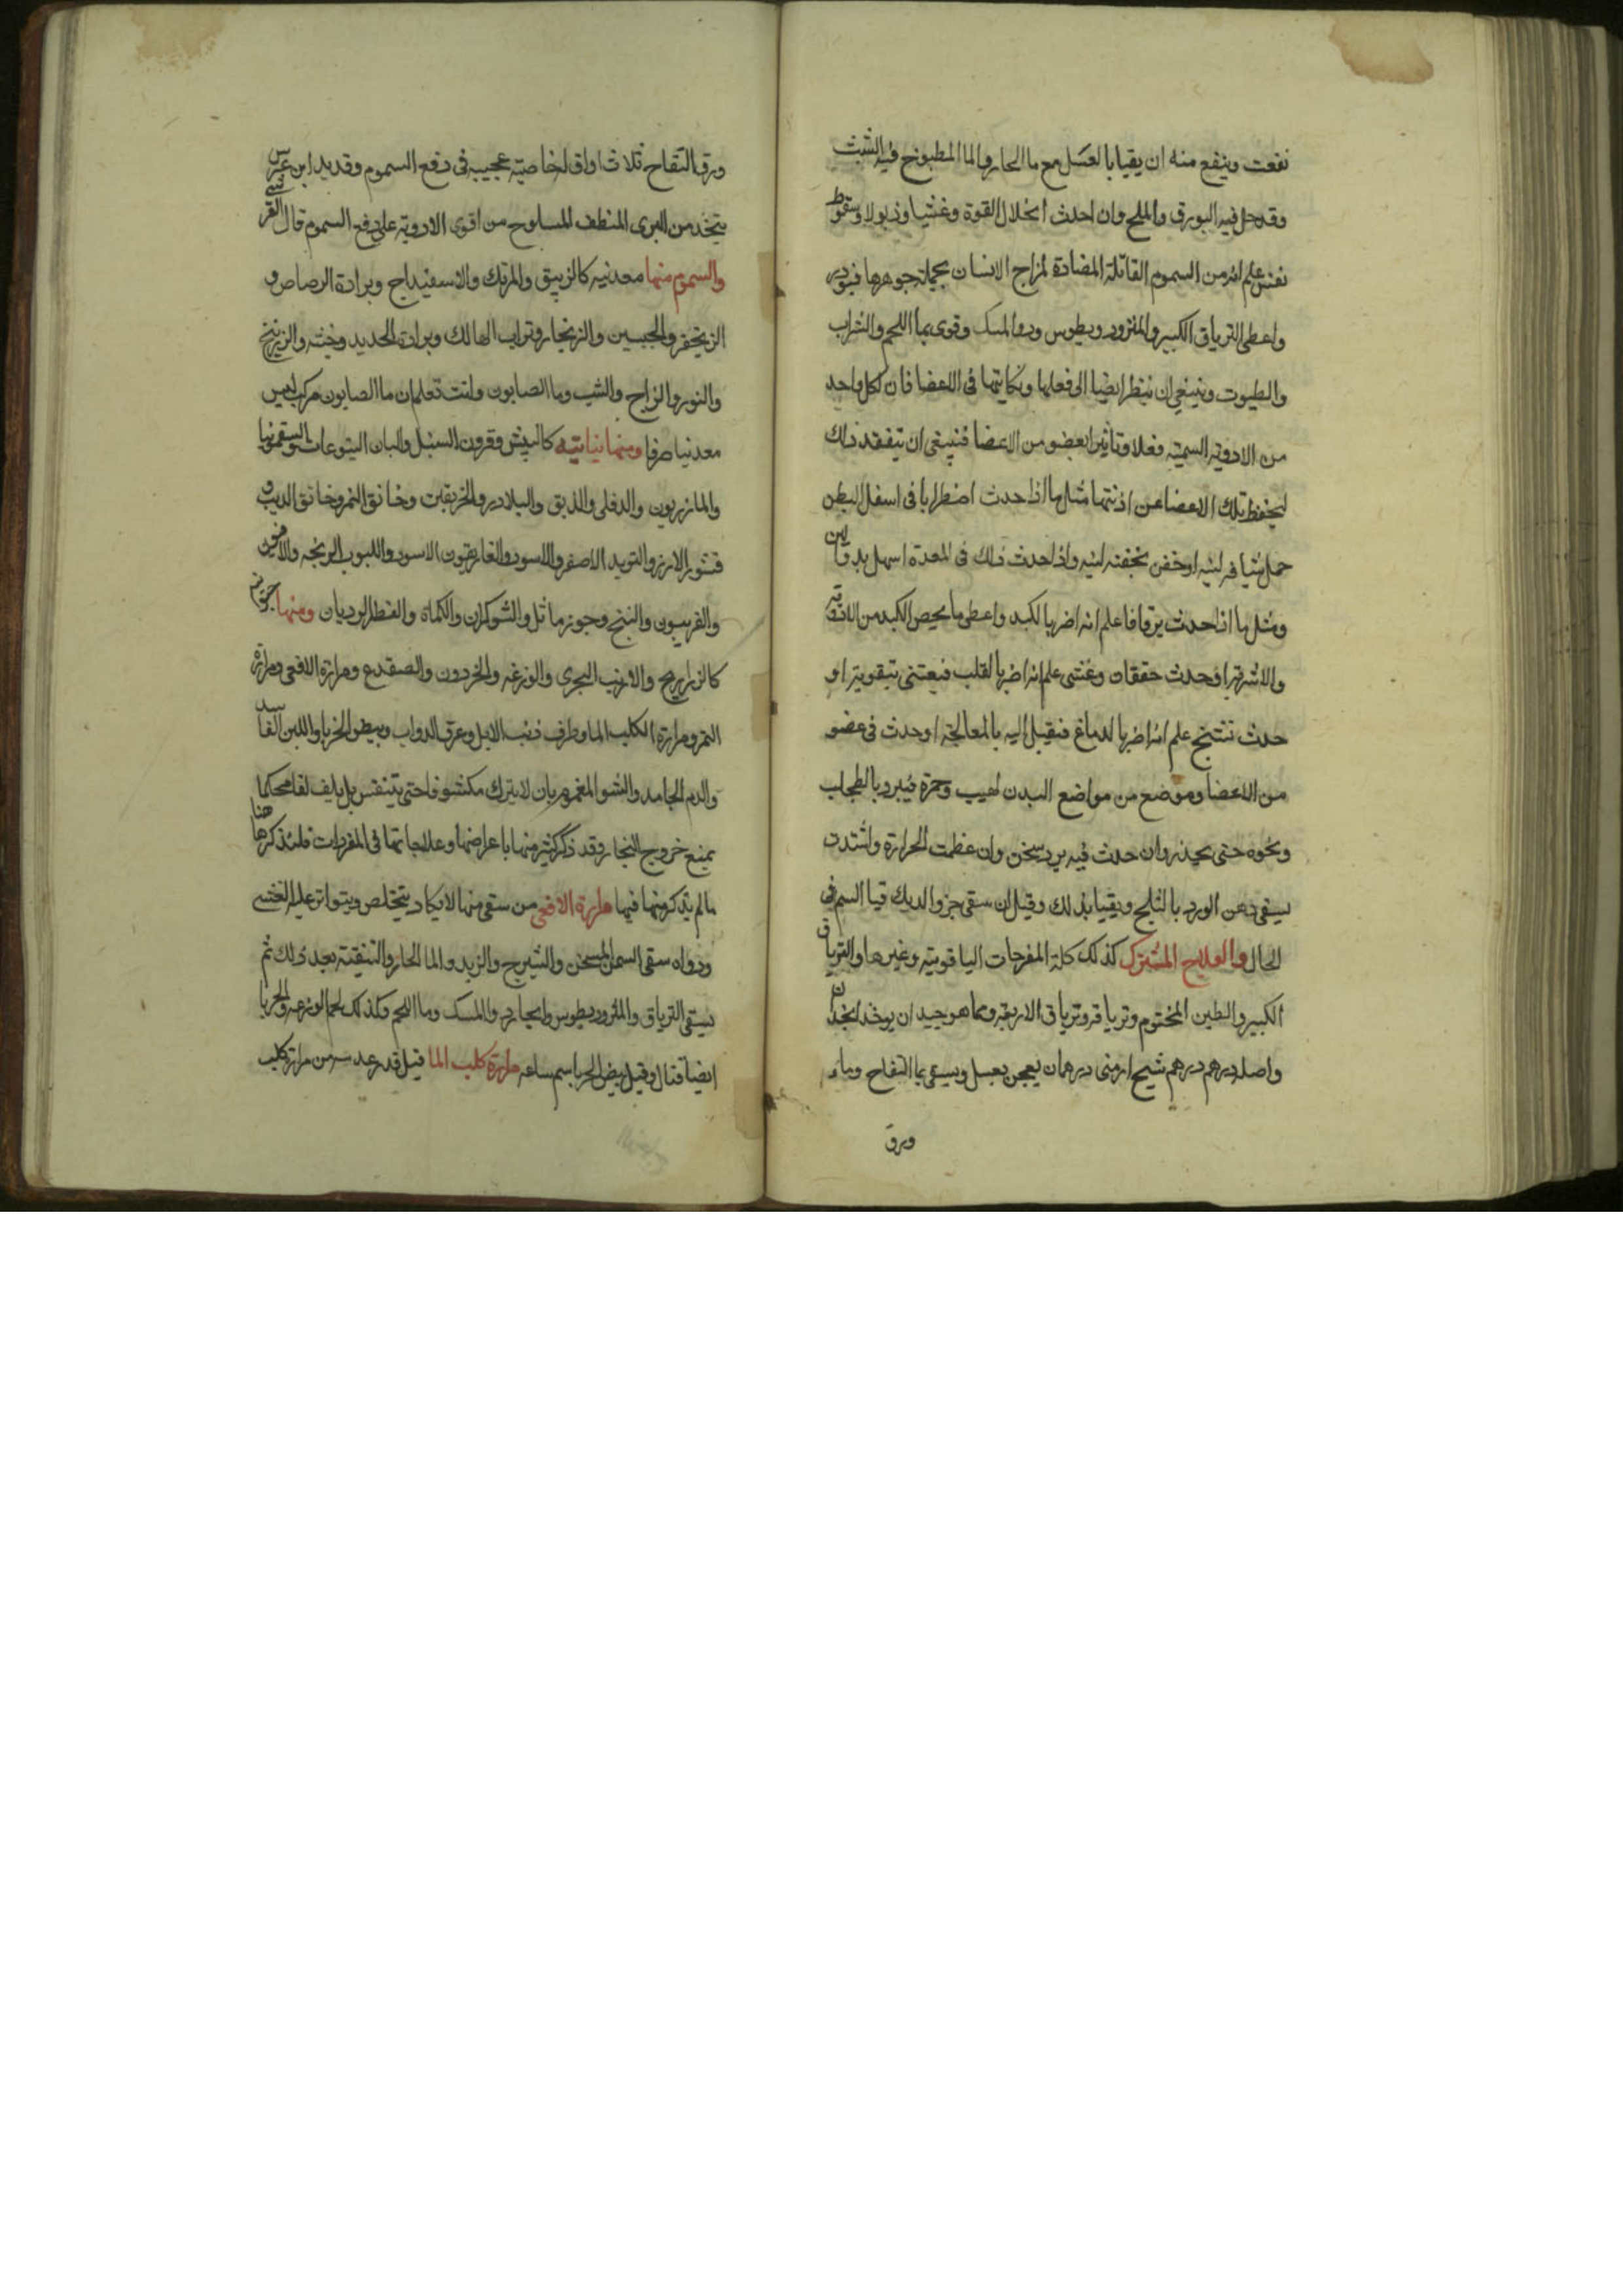 نفعت وينفع منه ان يقيا بالعسل مع ما الحار والما المطبوخ فيه الشبت
وقد حل فيه البورق والملح وان احدث انحلال القوة وغشيا وذبولا وسقوط
نفس علم انه من السموم القاتلة المضادة لمزاج الانسان بجملة جوهرها فبودر
واعطى الترياق الكبير والمثرود ويطوس ودوا المسك وقوى بما اللحم والشراب
والطيوت وينبغى ان ينظر ايضا الى فعلها ونكايتها فى الاعضا فان لكل واحد
من الادوية السمية فعلا وتاثيرا بعضو من الاعضا فينبغى ان يتفقد ذلك
ليحفظ تلك الاعضا عن اذيتها مثلها اذا حدث اضطرابا فى اسفل البطن
حمل شيافه لينه اوحقن بحقنه لينه واذا حدث ذلك فى المعدة اسهل بدقا لين
ومثلها اذا حدث يرقانا علم انه اضر بالكبد واعطى ما يخص الكبد من الادوية
والاشربة اوحدث خفقان وغشى علم انه اضر بالقلب فيعتنى بتقويته او
حدث تشنج علم انه اضر بالدماغ فيقبل اليه بالمعالجة اوحدث فى عضو
من الاعضا وموضع من مواضع البدن لهيب وحمرة فيبرد بالطحلب
ونحوه حتى يحيذه وان حدث فيه برد سخن وان عظمت الحرارة واشتدت
سيقى دهن الورد بالثلج ويقيا بذلك وقيل ان سقى جزوا لديك قيا السم فى
الحال والعلاج المشترك كذلك كله المفرحات الياقوتيه وغيرها والترياق
الكبير والطين المختوم وترياقه وترياق الاربعة ومما هو جيد ان يوخذ انجدان
واصله درهم درهم شيح ارمنى درهمان يعجن بعسل ويسقى بما التفاح وماء
ورق
ورق التفاح ثلاث اواق لخاصية عجيبه فى دفع السموم وقديد ابن عرس
يتخذ من البرى المنظف المسلوح من اقوى الادوية على دفع السموم قال القرشى
والسموم منها معدنيه كالزيبق والمرتك والاسفيداج وبرادة الرصاص و
الزنجفر والجبسين والزنجار وتراب الهالك وبرادة الحديد وخبثه والزرنيخ
والنوره والزاج والشب وما الصابون وانت تعلم ان ما الصابون مركب ليس
معدنيا صرفا ومنها نباتيه كالبيش وقرون السنبل والبان اليتوعات والسقمونيا
والمازريون والدفلى والدبق والبلادر والخربقين وخانق النمر وخانق الذيب و
قشور الارز والتربد الاصفر والاسود والغاريقون الاسود واللبوب الزنخه والافيون
والفربيون والبنج وجوز ماثل والشوكران والكماة والفطر الرديان ومنها حيوانية
كالذراريح والارنب البحرى والوزغه والحردون والضفدع ومرارة الافعى ومرارة
النمر ومرارة الكلب الما وطرف ذنب الايل وعرق الدواب وبيض الحربا واللبن الفاسد
والدم الجامد والشوا المغموم بان لا يترك مكشوفا حتى يتنفس بل يلف لفا محكما
يمنع خروج البخار وقد ذكر كثير منها باعراضها وعلاجاتها فى المفردات فلنذكر هاهنا
ما لم يذكر منها فيها مرارة الافعى من سقى منها لا يكاد يتخلص ويتواتر عليه الغشى
ودواه سقى السمن المسخن والشيرج والزبد والما الحار والتنقية بعد ذلك ثم
يسقى الترياق والمثروديطوس والبحارد والمسك وما اللحم وكذلك لحم الوزغه والحربا
ايضا قتال وقيل بيض الحربا سم ساعه مرارة كلب الما قيل قدر عدسه من مرارة كلب